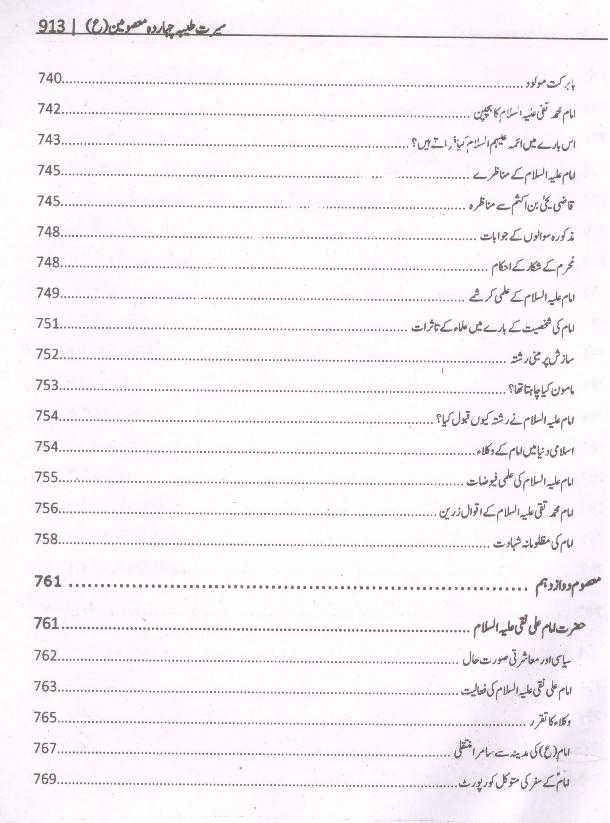 سیرت طیبہ چہاردہ معصومین(ع) | 913
بابرکت مولود........740
امام محمد تقی علیہ السلام کا بچپن........742
اس بارے میں ائمہ علیہم السلام کیا فرماتے ہیں؟........743
امام علیہ السلام کے مناظرے........745
قاضی یحیٰ بن اکثم سے مناظرہ........745
مذکورہ سوالوں کے جوابات........748
محرم کے شکار کے احکام........748
امام علیہ السلام کے علمی کرشمے........749
امام کی شخصیت کے بارے میں علماء کے تاثرات........751
سازش پر مبنی رشتہ........752
مامون کیا چاہتا تھا؟........753
امام علیہ السلام نے رشتہ کیوں قبول کیا؟........754
اسلامی دنیا میں امام کے وکلاء........754
امام علیہ السلام کی علمی فیوضات........755
امام محمد تقی علیہ السلام کے اقوال زرین........756
امام کی مظلومانہ شہادت........758
معصوم دوازدہم........761
حضرت امام علی نقی علیہ السلام........761
سیاسی اور معاشرتی صورت حال........762
امام علی نقی علیہ السلام کی فعالیت........763
وکلاء کا تقرر........765
امام(ع) کی مدینہ سے سامرا منتقلی........767
امام کے سفر کی متوکل کو رپورٹ........769